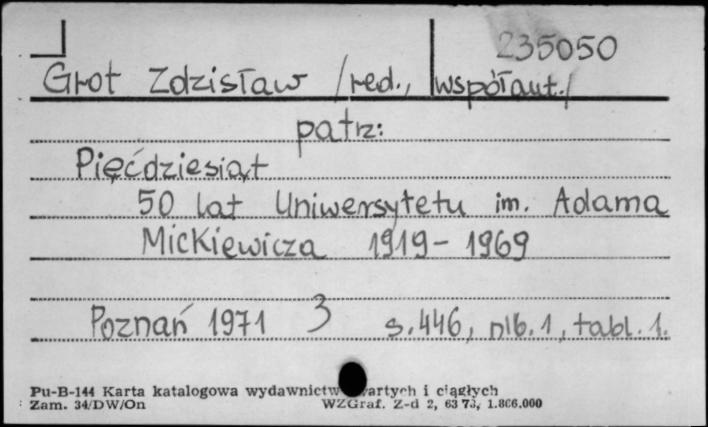 235050
Grot Zdzisław /red., współaut./
patrz:
Pięćdziesiąt
50 lat Uniwersytetu im. Adama
Mickiewicza 1919-1969
Poznań 1971 3 s.446, nlb.1, tabl.1.
Pu-B-144 Karta katalogowa wydawnictw zwartych i ciągłych
Zam. 34/DW/On WZGraf. Z-d 2, 63 73, 1.866.000